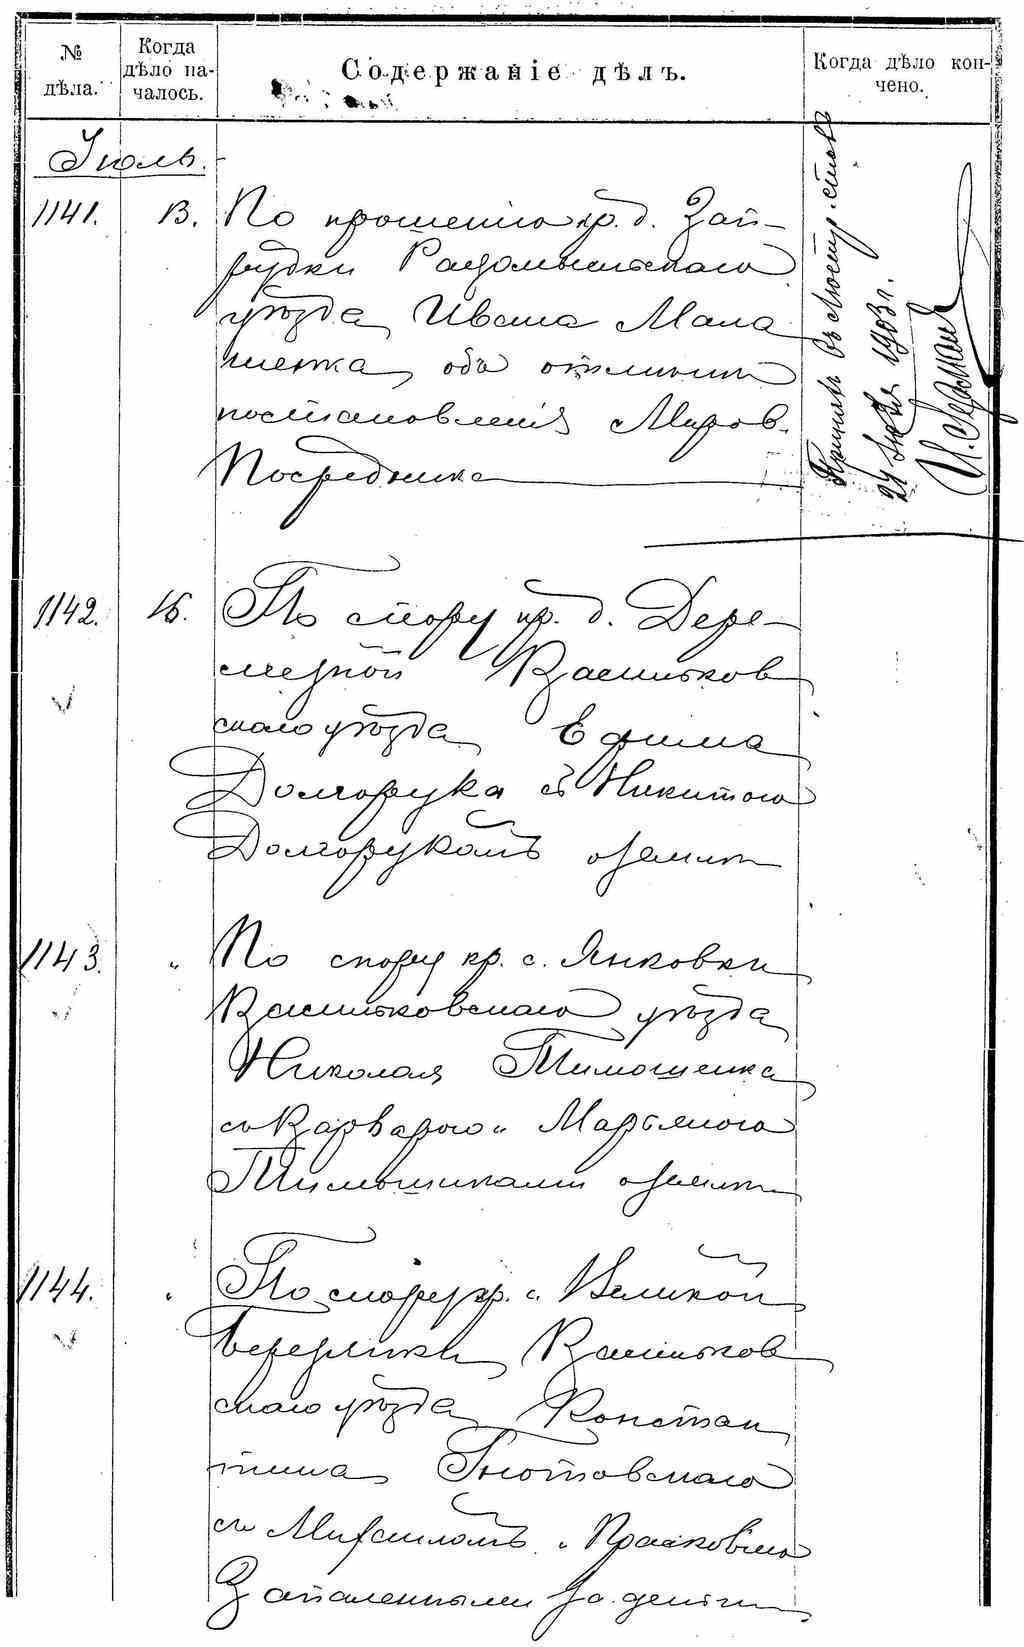 № дѣла.
Когда дѣло на-
чалось.
Содержаніе дѣлъ.
Когда дѣло кон-
чено.
Іюль.
1141. 13. По прошенію кр. д. Зай-
рудки Радомысльскаго
уѣзда Ивана Мала
шенка, объ отмѣнѣ
постановленія Миров.
Посредника
27 1903 г.
1142. 15. По спору кр. д. Дере-
мезной Васильков
скаго уѣзда Ефима
Долгорука съ Никитою
Долгорукомъ о землѣ
1143. " По спору кр. с. Янковки
Васильковскаго уѣзда
Николая Тимошенка
съ Варварою и Марьяною
Тимошенками о землѣ
1144. " По спору кр. с. Великой
Березянки Васильков
скаго уѣзда Констан
тина Гнотовскаго
съ Михаиломъ и Прасковіею
Запаленными за деньги